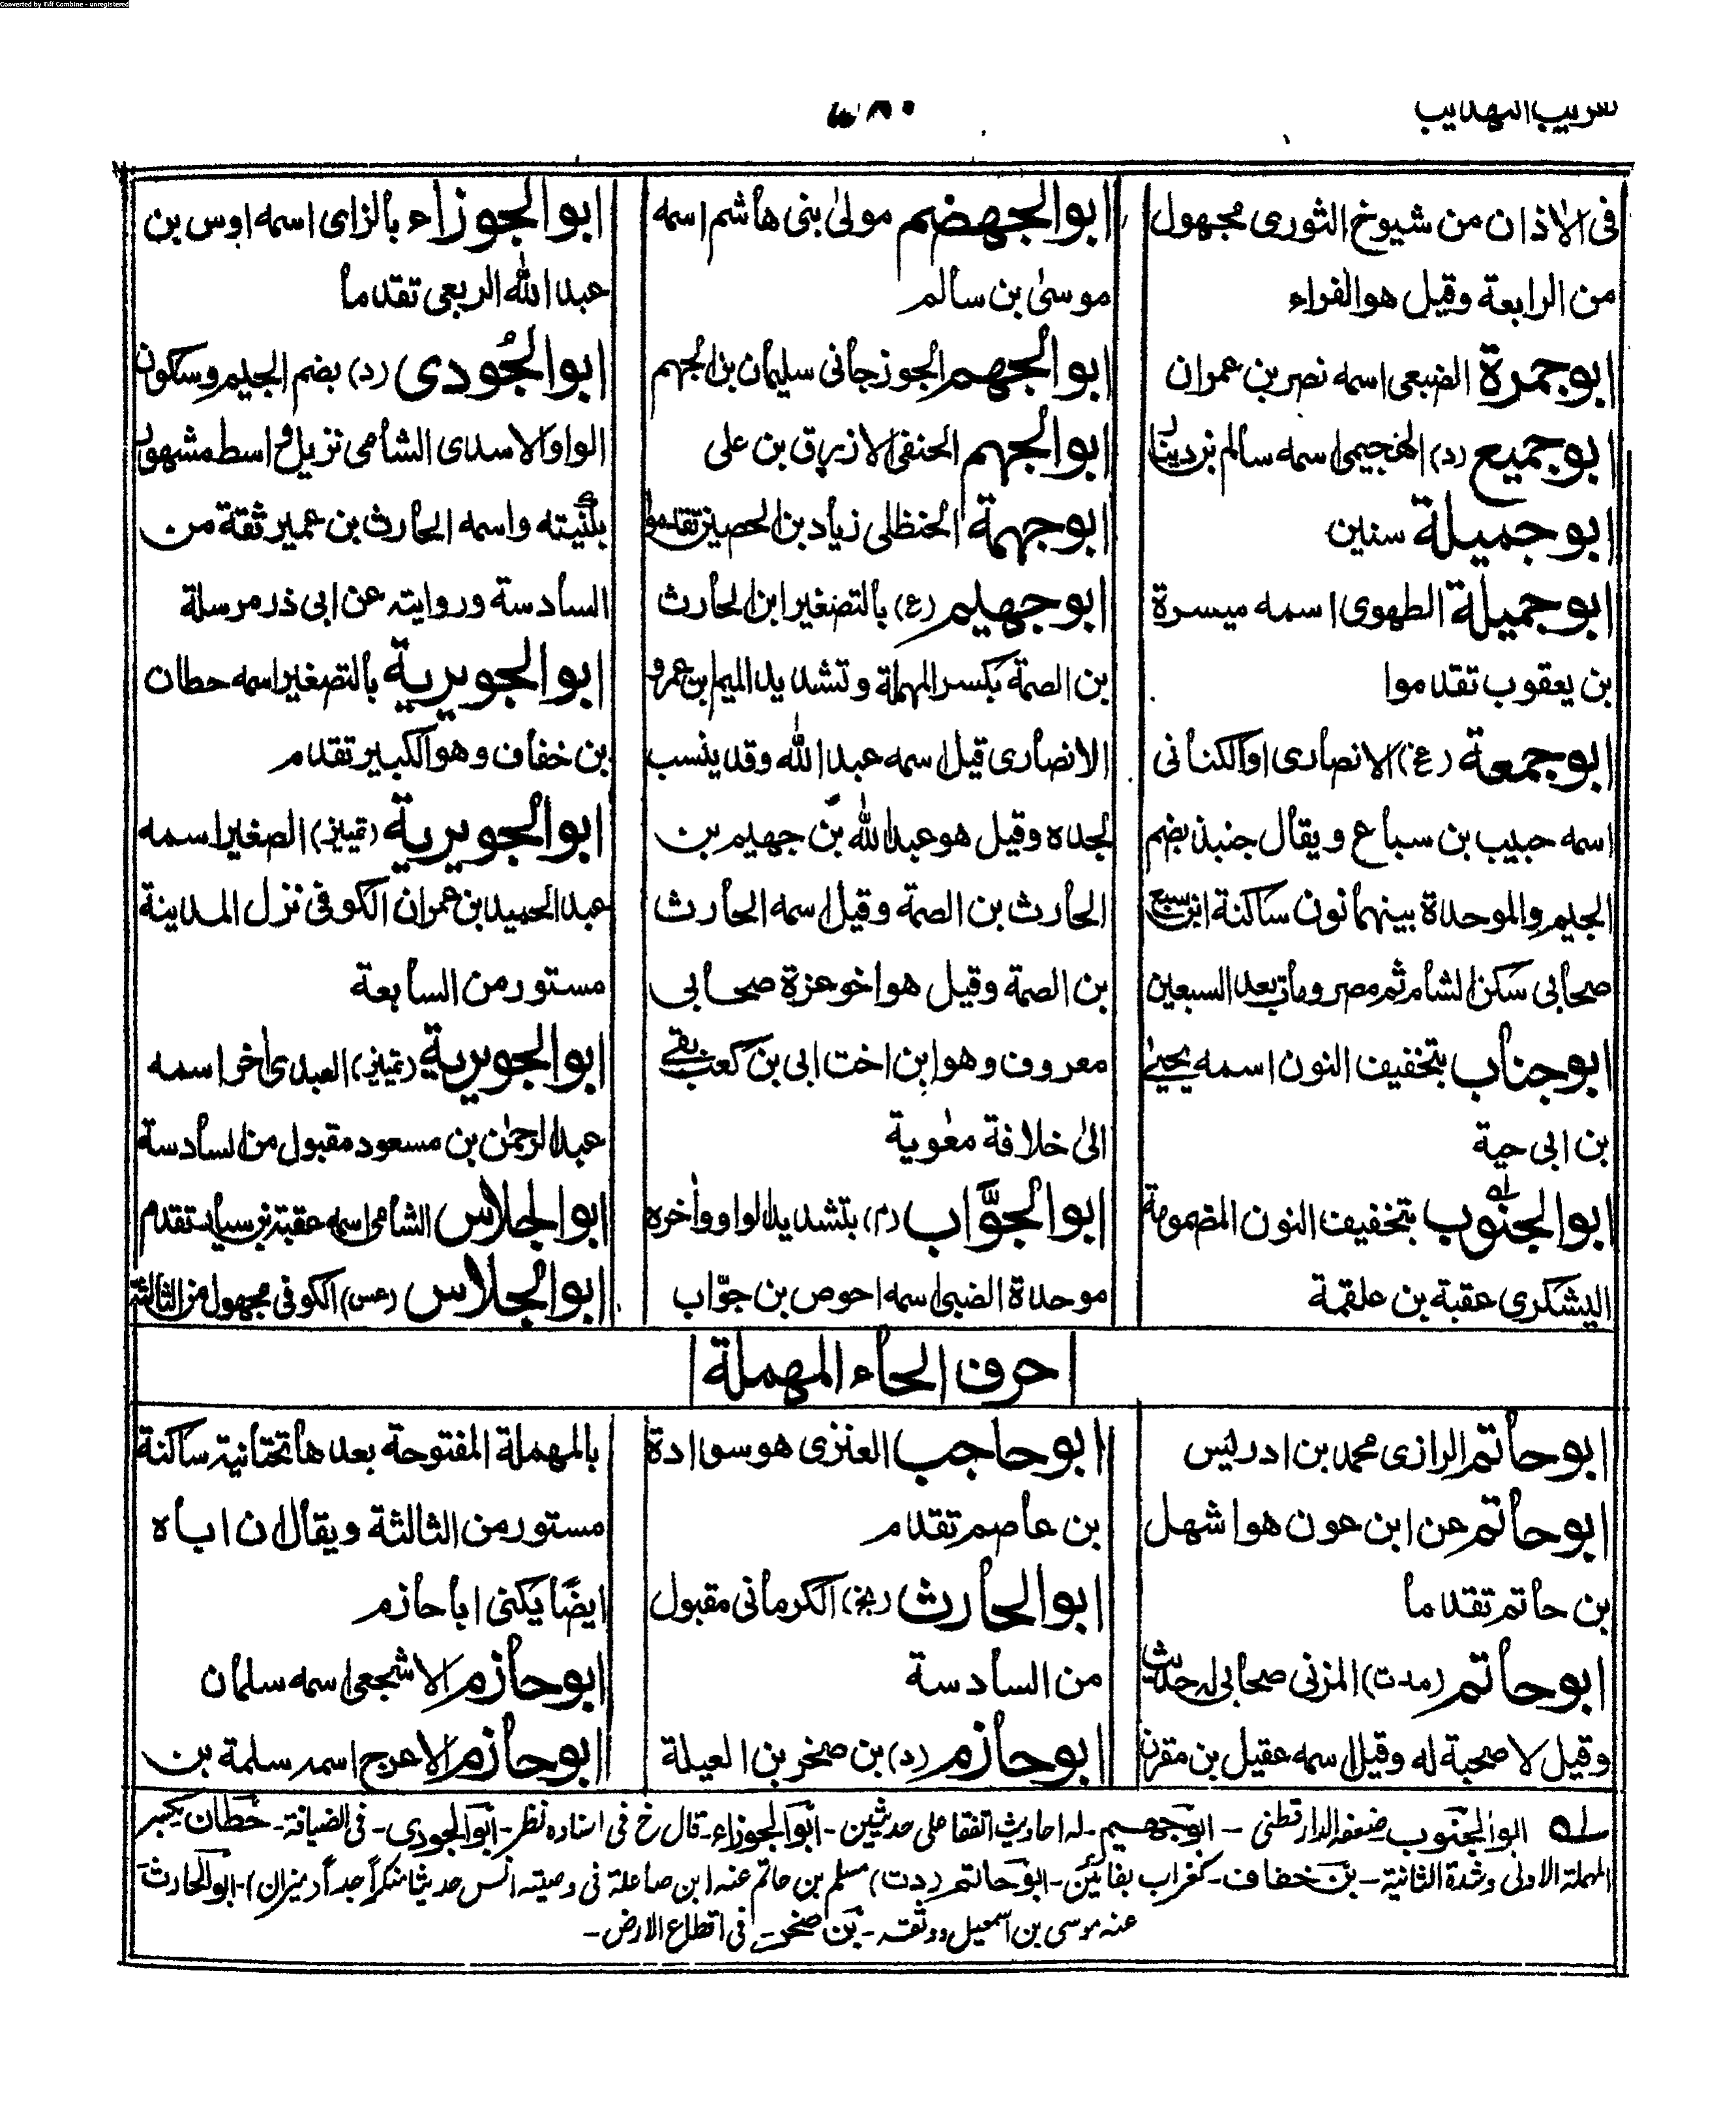 Converted by Tiff Combine - unregistered
تقريب التهذيب
٤٨٠
فى الاذان من شيوخ الثورى مجهول
من الرابعة وقيل هو الفراء
ابو جمرة الضبعى اسمه نصر بن عمران
ابو جميع (د) الهجيمى اسمه سالم بن دينار
ابو جميلة سنين
ابو جميلة الطهوى اسمه ميسرة
بن يعقوب تقدموا
ابو جمعة (عخ) الانصارى او الكنانى
اسمه حبيب بن سباع ويقال جنبذ بضم
الجيم والموحدة بينهما نون ساكنة ابن سبع
صحابى سكن الشام ثم مصر ومات بعد السبعين
ابو جناب بتخفيف النون اسمه يحيى
بن ابى حية
ابو الجنوب بتخفيف النون المضمومة
اليشكرى عقبة بن علقمة
ابو الجهضم مولى بنى هاشم اسمه
موسى بن سالم
ابو الجهم الجوزجانى سليمان بن الجهم
ابو الجهم الحنفى الازرق بن على
ابو جهمة الحنظلى زياد بن الحصين تقدموا
ابو جهيم (ع) بالتصغير ابن الحارث
بن الصمة بكسر المهملة وتشديد الميم ابن عمرو
الانصارى قيل اسمه عبد الله وقد ينسب
لجده وقيل هو عبد الله بن جهيم بن
الحارث بن الصمة وقيل اسمه الحارث
بن الصمة وقيل هو اخو عزة صحابى
معروف وهو ابن اخت ابى بن كعب بقى
الى خلافة معوية
ابو الجوّاب (م) بتشديد الواو واخره
موحدة الضبى اسمه احوص بن جوّاب
ابو الجوزاء بالزاى اسمه اوس بن
عبد الله الربعى تقدما
ابو الجُودى (د) بضم الجيم وسكون
الواو الاسدى الشامى نزيل واسط مشهور
بكنيته واسمه الحارث بن عمير ثقة من
السادسة وروايته عن ابى ذر مرسلة
ابو الجويرية بالتصغير اسمه حطان
بن خفاف وهو الكبير تقدم
ابو الجويرية (تمييز) الصغير اسمه
عبد الحميد بن عمران الكوفى نزل المدينة
مستور من السابعة
ابو الجويرية (تمييز) العبدى اخر اسمه
عبد الرحمن بن مسعود مقبول من السادسة
ابو الجلاس الشامى اسمه عقبة بن سيار تقدم
ابو الجلاس (عس) الكوفى مجهول من الثالثة
حرف الحاء المهملة
ابو حاتم الرازى محمد بن ادريس
ابو حاتم عن ابن عون هو اشهل
بن حاتم تقدما
ابو حاتم (مدت) المزنى صحابى له حديث
وقيل لا صحبة له وقيل اسمه عقيل بن مقرن
ابو حاجب العنزى هو سوادة
بن عاصم تقدم
ابو الحارث (بخ) الكرمانى مقبول
من السادسة
ابو حازم (د) بن صخر بن العيلة
بالمهملة المفتوحة بعدها تحتانية ساكنة
مستور من الثالثة ويقال ان اباه
ايضًا يكنى ابا حازم
ابو حازم الاشجعى اسمه سلمان
ابو حازم الاعرج اسمه سلمة بن
له ابو الجنوب ضعفه الدارقطنى - ابو جهيم - له احاديث اتفقا على حديثين - ابو الجوزاء - قال خ فى اسناده نظر - ابو الجودى - فى الضيافة - حطان بكسر
المهملة الاولى وشدة الثانية - بن خفاف - كغراب بفائين - ابو حاتم (دت) مسلم بن حاتم عنه ابن صاعد له فى وصيته انس حديثا منكراً جداً (ميزان) - ابو الحارث
عنه موسى بن اسمعيل ووثقه - بن صخر - فى اقطاع الارض -